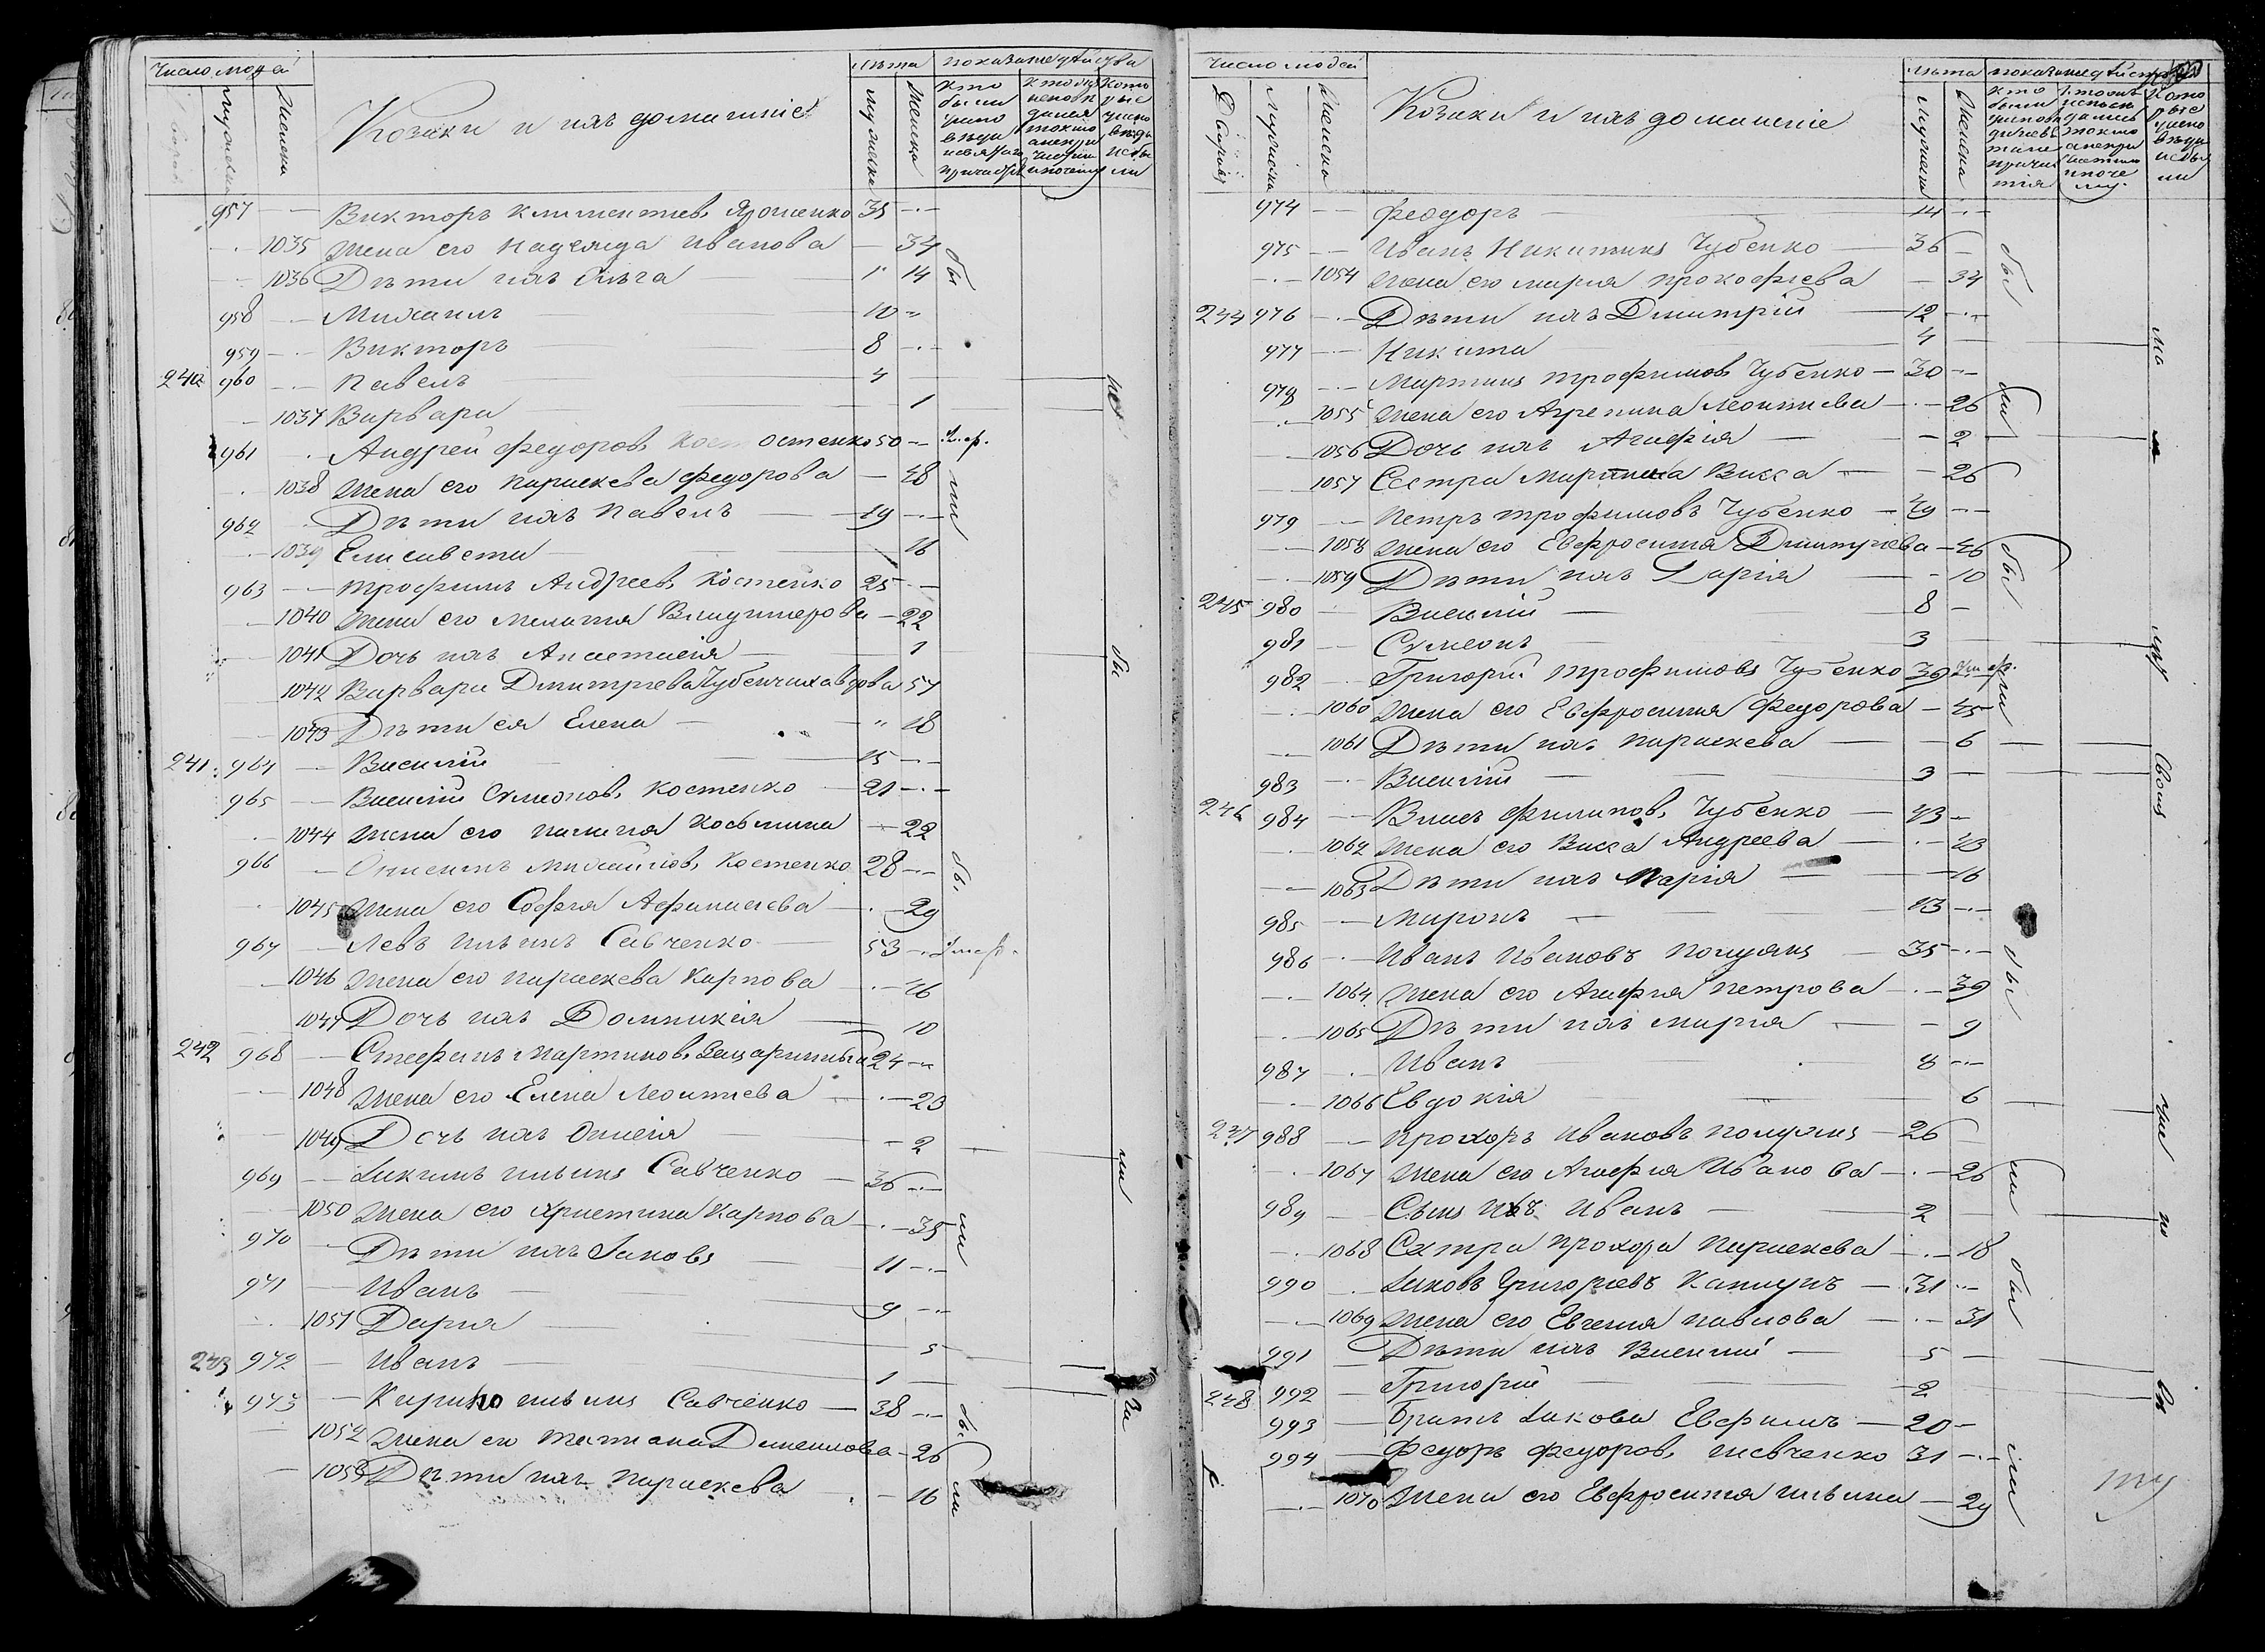 Число людей
Мужеска
Женска
Козаки и ихъ домашніе
Лѣта
Мужеска
Женска
показание дѣйства
957 Викторъ Климентиев Ярошенко 35
1035 Жена его Надежда Иванова 34
1036 Дѣти ихъ Ольга 14
958 Михаилъ 10
959 Викторъ 8
240 960 Павелъ 4
1037 Варвара 1
961 Андрей Федоров Костенко 50 Умер.
1038 Жена его Параскева Федорова 48
962 Дѣти ихъ Павелъ 19
1039 Елисавета 16
963 Трофимъ Андреев Костенко 25
1040 Жена его Меланія Владимерова 22
1041 Дочь ихъ Анастасія 1
1042 Варвара Дмитриева Чубенчиха вдова 57
1043 Дѣти ея Елена 18
241 964 Василій 15
965 Василій Симеонов Костенко 21
1044 Жена его Козьмина 22
966 Михайлов Костенко 28
1045 Жена его Софія Афанасіева 29
967 Левъ Ильинъ Савченко 53 Умер.
1046 Жена его Параскева Карпова 46
1047 Дочь ихъ Домникія 10
242 968 Стефанъ Мартинов 24
1048 Жена его Елена Леонтиева 23
1049 Дочь ихъ 2
969 Иакимъ Ильинъ Савченко 36
1050 Жена его Христина Карпова 35
970 Дѣти ихъ Іаковъ 11
971 Иванъ 9
1051 Дарія 5
243 972 Иванъ 1
973 Кирило Ильинъ Савченко 38
1052 Жена его Татиана Данилова 26
1053 Дѣти ихъ Параскева 16
бы
ли
бы
ли
бы
ли
Число людей
Дворовъ
Мужеска
Женска
Козаки и ихъ домашніе
Лѣта
Мужеска
Женска
показание дѣйства
974 Феодоръ 14
975 Иванъ Никитинъ Чубенко 36
1054 Жена его Марія Прокофіева 34
244 976 Дѣти ихъ Димитрій 12
977 Никита 4
978 Мартинъ Трофимовъ Чубенко 30
1055 Жена его Агрепина Леонтиева 26
1056 Дочь ихъ Агафія 2
1057 Сестра Мартина Васса 26
979 Петръ Трофимовъ Чубенко 49
1058 Жена его Евфросинія Дмитриева 46
1059 Дѣти ихъ Дарія 10
245 980 Василій 8
981 Симеонъ 3
982 Григорій Трофимовъ Чубенко 39 Умер.
1060 Жена его Евфросинія Федорова 45
1061 Дѣти ихъ Параскева 6
983 Василій 3
246 984 Власъ Филипов Чубенко 43
1062 Жена его Васса Андреева 43
1063 Дѣти ихъ Марія 16
985 Миронъ 13
986 Иванъ Ивановъ Полуянъ 35
1064 Жена его Агафія Петрова 39
1065 Дѣти ихъ Марія 9
987 Иванъ 8
1066 Евдокія 6
247 988 Прохоръ Ивановъ Полуянъ 26
1067 Жена его Агафія Иванова 26
989 Сынъ ихъ Иванъ 2
1068 Сестра Прохора Параскева 18
990 Іаковъ Григориевъ 31
1069 Жена его Евгенія Павлова 31
991 Дѣти ихъ Василій 5
248 992 Григорій 2
993 Братъ Іакова Евфимъ 20
994 Федоръ Федоров Шевченко 31
1070 Жена его Евфросинія Ильина 29
бы
ли
бы
ли
бы
ли
бы
ли